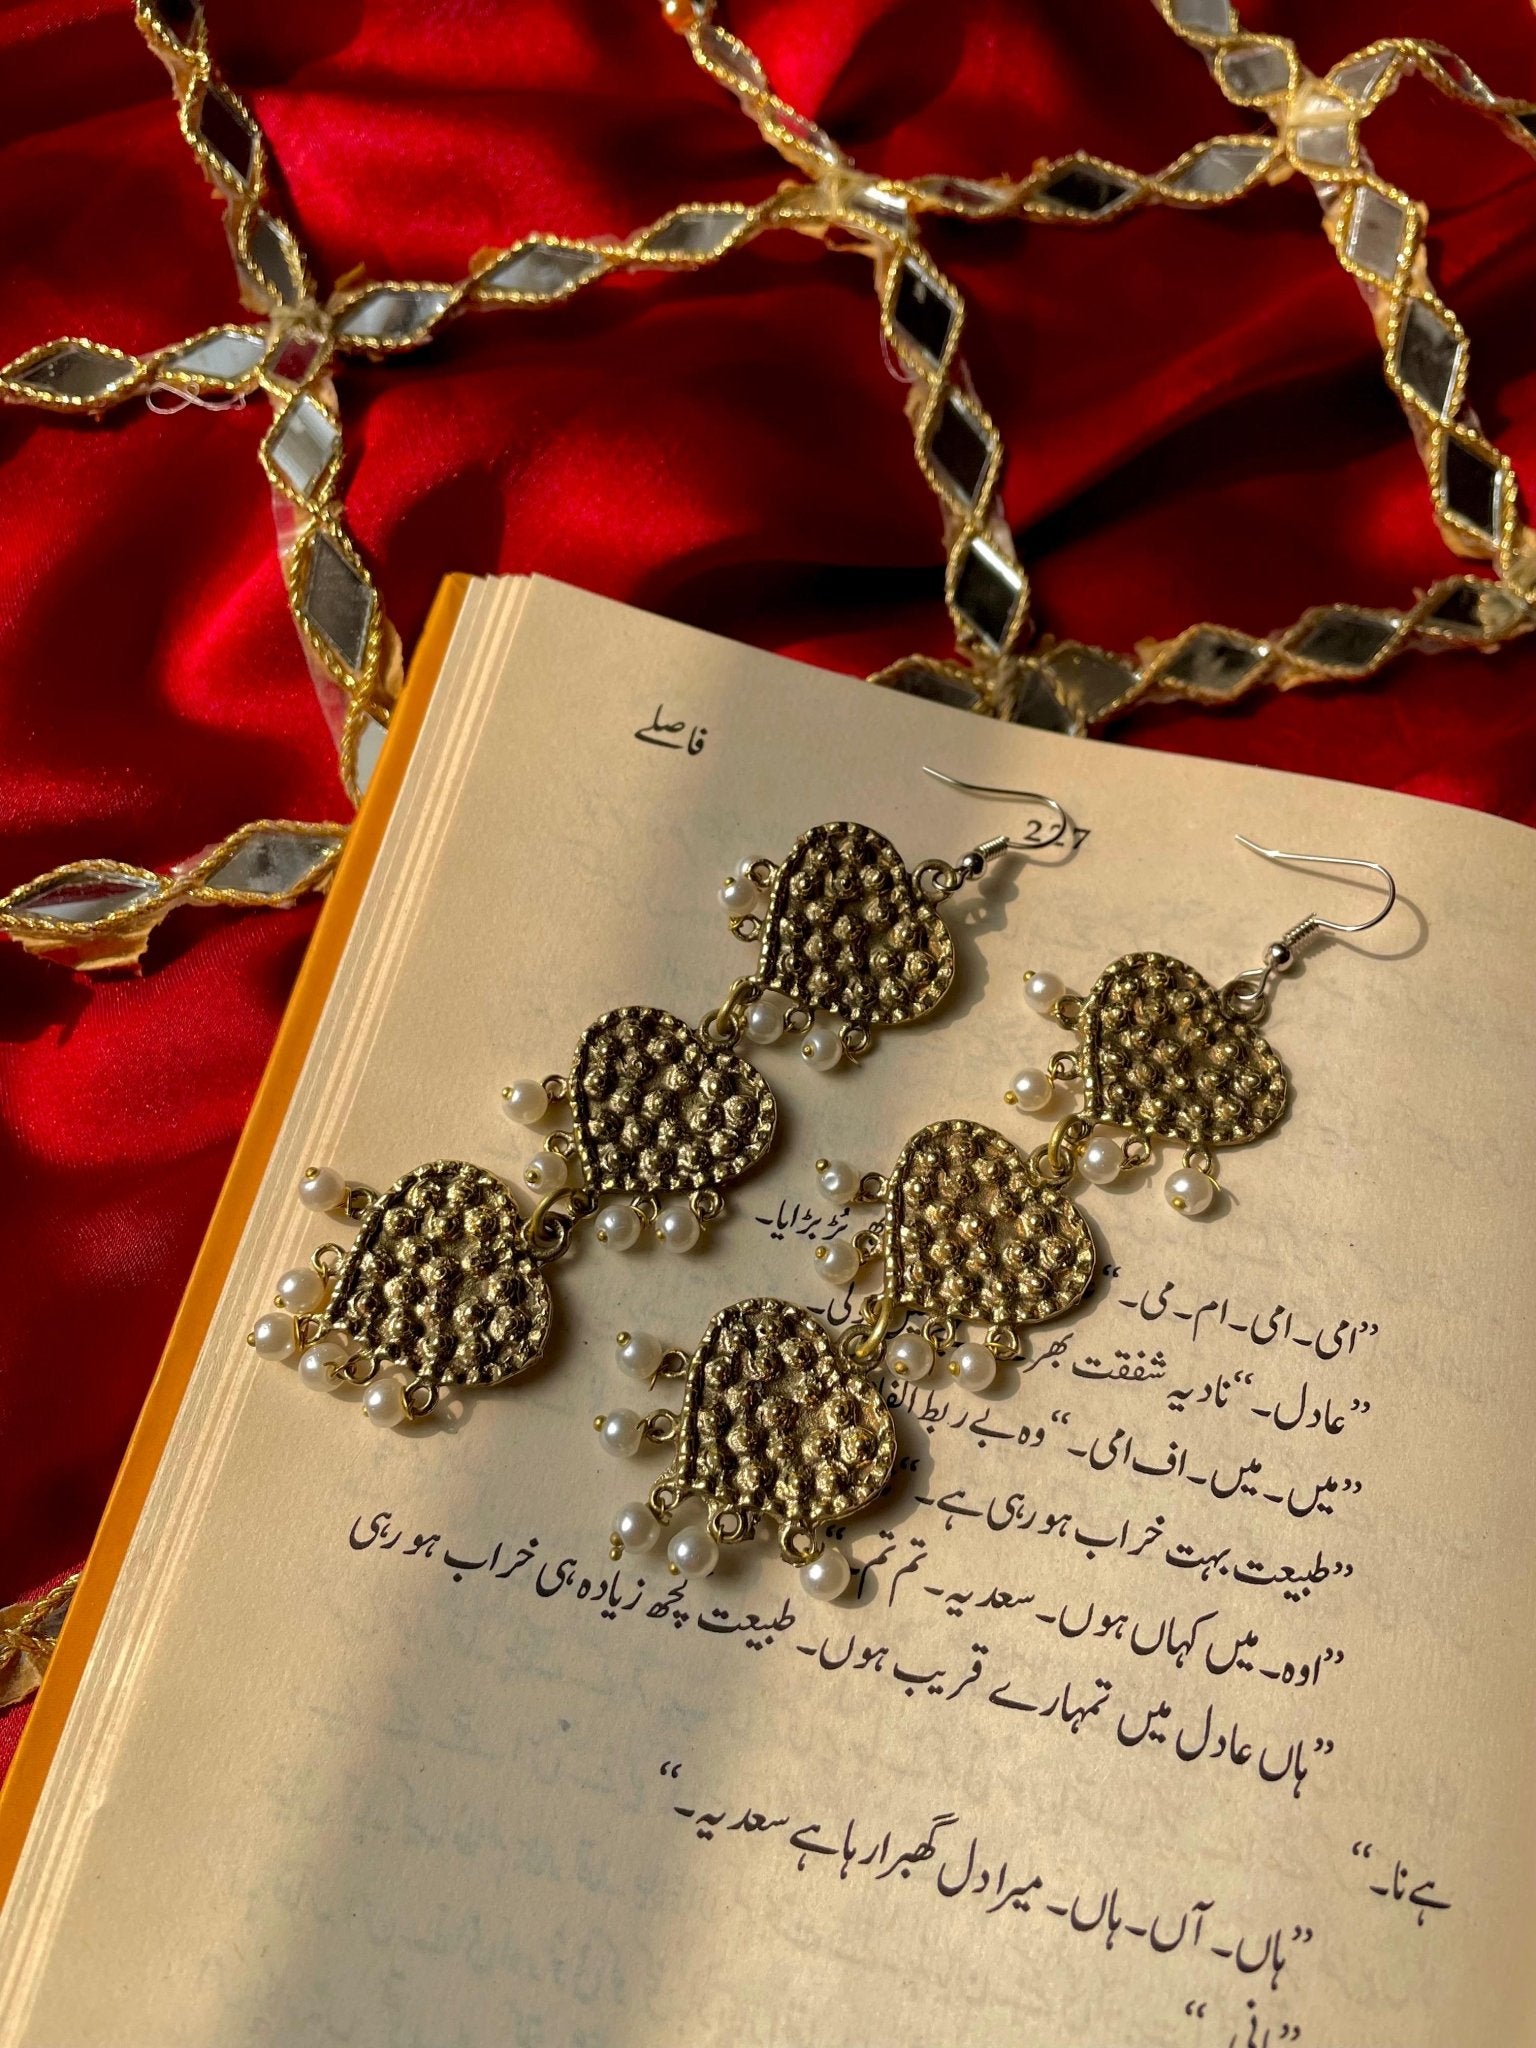 فاصلے
227
بڑبڑایا۔
”امی۔امی۔ام۔می۔“
”عادل۔“نادیہ شفقت بھر
”میں۔میں۔اف امی۔“وہ بے ربط الفا
”طبیعت بہت خراب ہو رہی ہے۔“
”اوہ۔میں کہاں ہوں۔سعدیہ۔تم تم۔“
”ہاں عادل میں تمہارے قریب ہوں۔طبیعت کچھ زیادہ ہی خراب ہو رہی
ہے نا۔“
”ہاں۔آں۔ہاں۔میرا دل گھبرا رہا ہے سعدیہ۔“